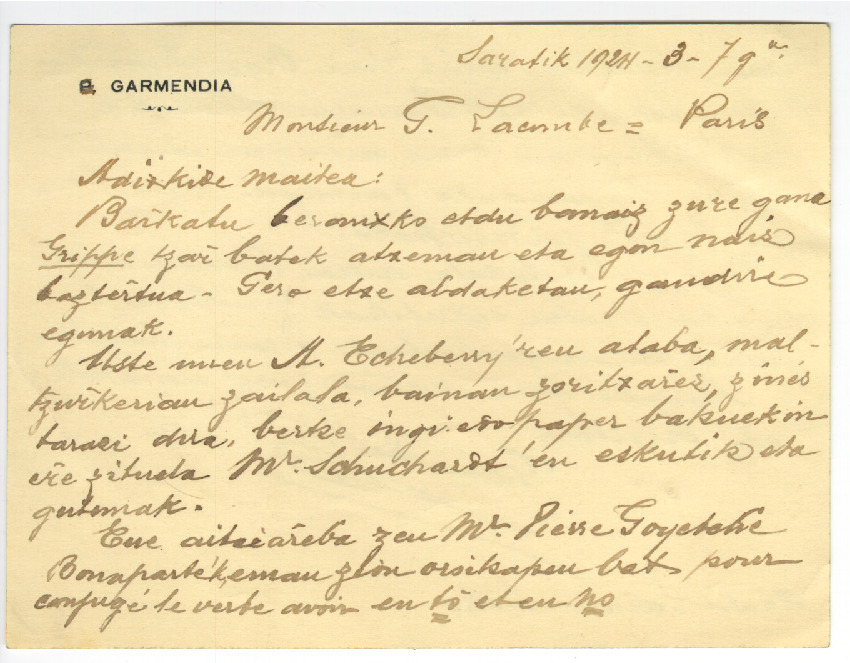 Saratik 1924-3-7 gn.
P. GARMENDIA
Monsieur G. Lacombe = Paris
Adiskide maitea:
Bar̃katu beranxko etdu banaiz zure gana
Grippe tzar̃ batek atzeman eta egon naiz
baztertua - Gero etxe aldaketan, gan dire
egunak.
Uste nuen A. Echeberry'ren alaba, mal-
tzurkerian zailala, bainan zoritxar̃ez, zinez
tarazi dira, berke ingi edo paper bakuekin
er̃e zituela Mr. Schuchardt'en eskutik eta
gutunak.
Ene aitziar̃eba zen Mr. Pierre Goyetche
Bonaparték, eman zion orsikapen bat pour
conjugé le verbe avoir en to et en no